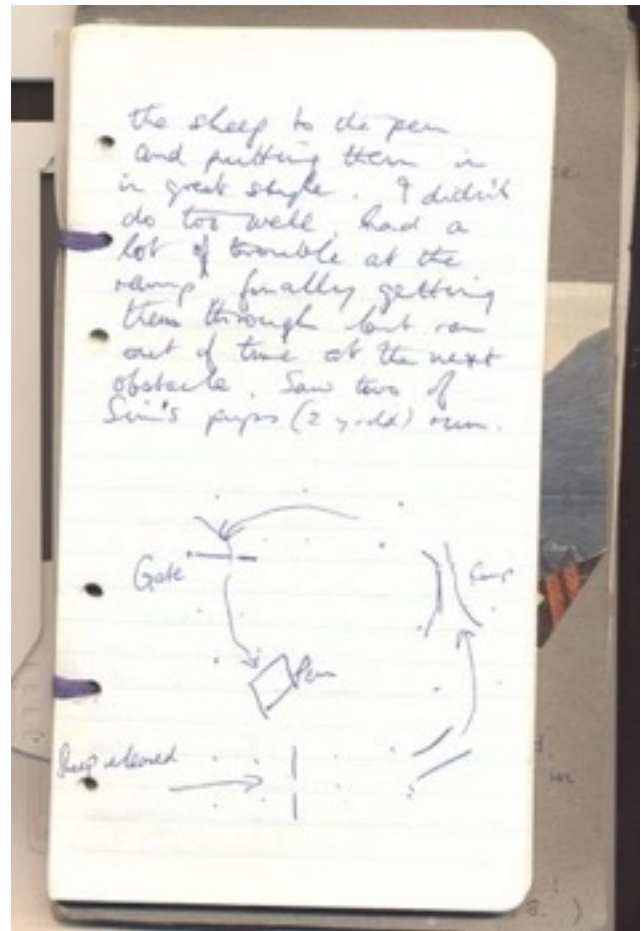 the sheep to the pen
and putting them in
in great style. I didn't
do too well, had a
lot of trouble at the
ramp finally getting
them through but ran
out of time at the next
obstacle. Saw two of
pups (2 yr old) run.
Gate
Ramp
Pen
Sheep released